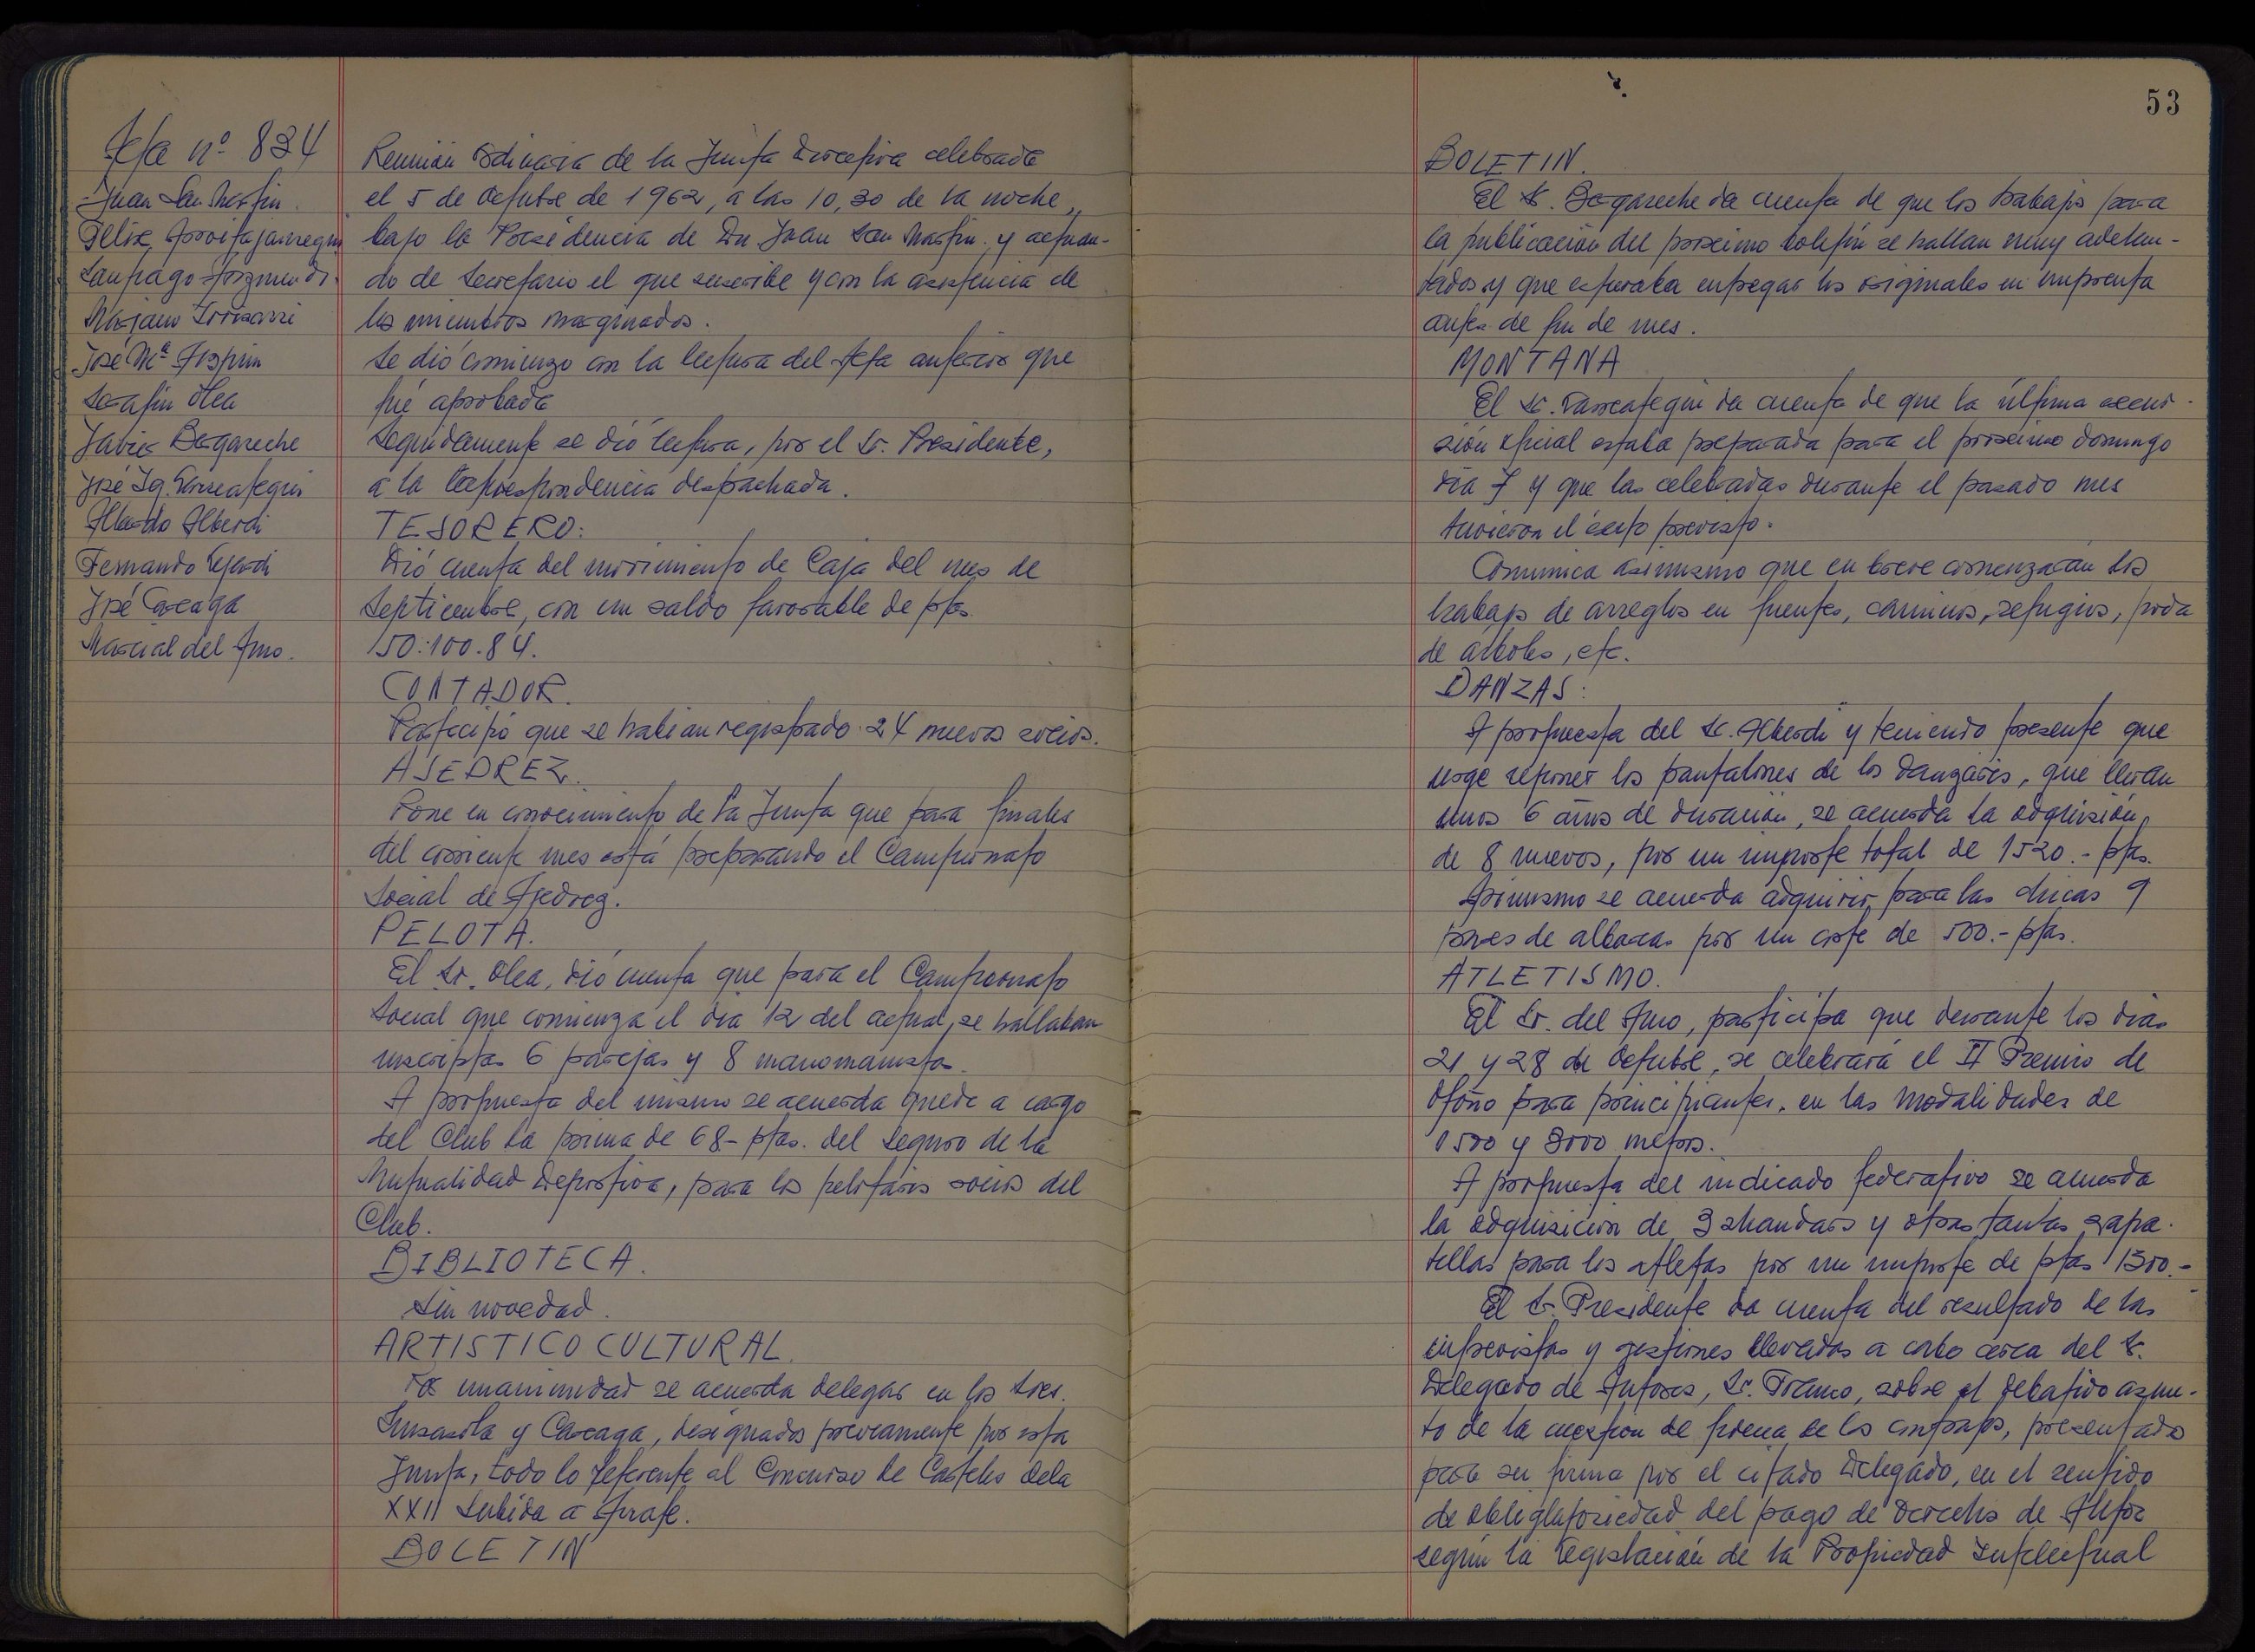 Acta nº 834
Juan San Martin
Felix Arreitajauregui
Santiago Arizmendi
Mariano Irisarri
José Mª Azpiri
Serafin Olea
Javier Bergareche
José Ig. Larreategui
Alberdi
Fernando
José Careaga
Marcial del Amo.
Reunión Ordinaria de la Junta Directiva celebrada
el 5 de Octubre de 1962, a las 10,30 de la noche,
bajo la Presidencia de Dn Juan San Martin y actuan-
do de Secretario el que suscribe y con la asistencia de
los miembros marginados.
Se dió comienzo con la lectura del Acta anterior que
fué aprobada
Seguidamente se dió lectura, por el Sr. Presidente,
a la Correspondencia despachada.
TESORERO:
Dió cuenta del movimiento de Caja del mes de
Septiembre, con un saldo favorable de ptas.
150.100.84.
CONTADOR.
Participó que se habian registrado 24 nuevos socios.
AJEDREZ.
Pone en conocimiento de la Junta que para finales
del corriente mes está preparando el Campeonato
Social de Ajedrez.
PELOTA.
El Sr. Olea, dió cuenta que para el Campeonato
Social que comienza el dia 12 del actual, se hallaban
inscriptas 6 parejas y 8 manomanistas.
A propuesta del mismo se acuerda quede a cargo
del Club la prima de 68.- ptas. del Seguro de la
Mutualidad Deportiva, para los pelotaris socios del
Club.
BIBLIOTECA.
Sin novedad.
ARTISTICO CULTURAL.
Por unanimidad se acuerda delegar en los Sres.
Susasola y Careaga, designados préviamente por esta
Junta, todo lo referente al Concurso de Carteles de la
XXII Subida a Arrate.
BOLETIN
53
BOLETIN.
El Sr. Bergareche da cuenta de que los trabajos para
la publicación del próximo boletín se hallan muy adelan-
tados y que esperaba entregar los originales en imprenta
antes de fin de mes.
MONTAÑA
El Sr. Larreategui da cuenta de que la última excur-
sión oficial estaba preparada para el próximo domingo
dia 7 y que las celebradas durante el pasado mes
tuvieron el éxito previsto.
Comunica asimismo que en breve comenzarán los
trabajos de arreglos en fuentes, caminos, refugios, poda
de árboles, etc.
DANZAS:
A propuesta del Sr. Alberdi y teniendo presente que
urge reponer los pantalones de los danzaris, que llevan
unos 6 años de duración, se acuerda la adquisición
de 8 nuevos, por un importe total de 1520.- ptas.
Asimismo se acuerda adquirir para las chicas 9
pares de albarcas por un coste de 500.- ptas.
ATLETISMO.
El Sr. del Amo, participa que durante los dias
21 y 28 de Octubre, se celebrará el II Premio de
Otoño para principiantes, en las modalidades de
1500 y 3000 metros.
A propuesta del indicado federativo se acuerda
la adquisición de 3 chandars y otras tantas zapa-
tillas para los atletas por un importe de ptas 1300.-
El Sr. Presidente da cuenta del resultado de las
entrevistas y gestiones llevadas a cabo cerca del Sr.
Delegado de Autores, Sr. Franco, sobre el debatido asun-
to de la cuestion de firma de los contratos, presentado
para su firma por el citado Delegado, en el sentido
de obligatoriedad del pago de Derechos de Autor
según la legislación de la Propiedad Intelectual